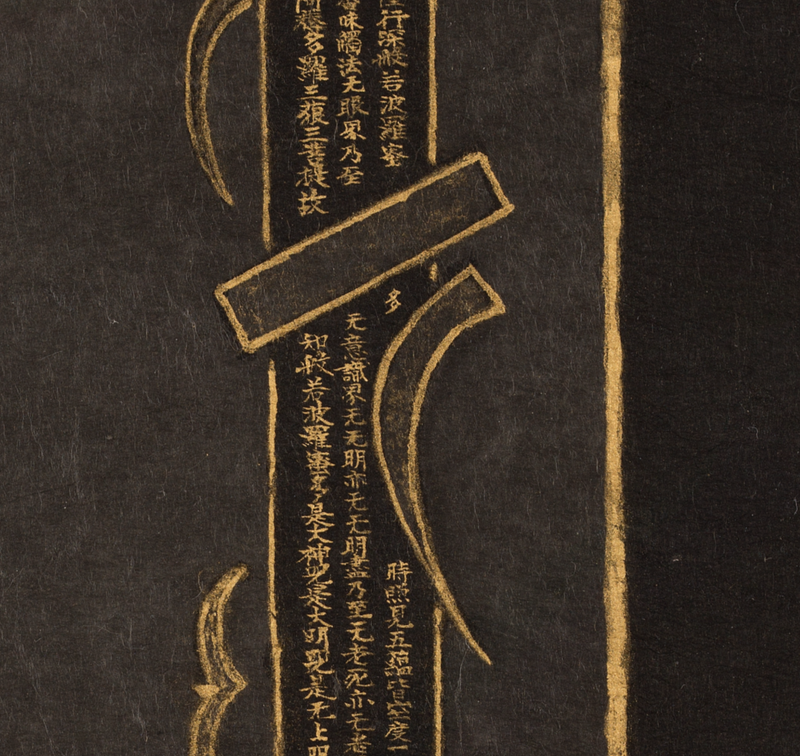 行深般若波羅蜜
多
時照見五蘊皆空度一
味觸法无眼界乃至
无意識界无无明亦无无明盡乃至无老死亦无老
多羅三藐三菩提故
知般若波羅蜜多是大神呪是大明呪是无上明